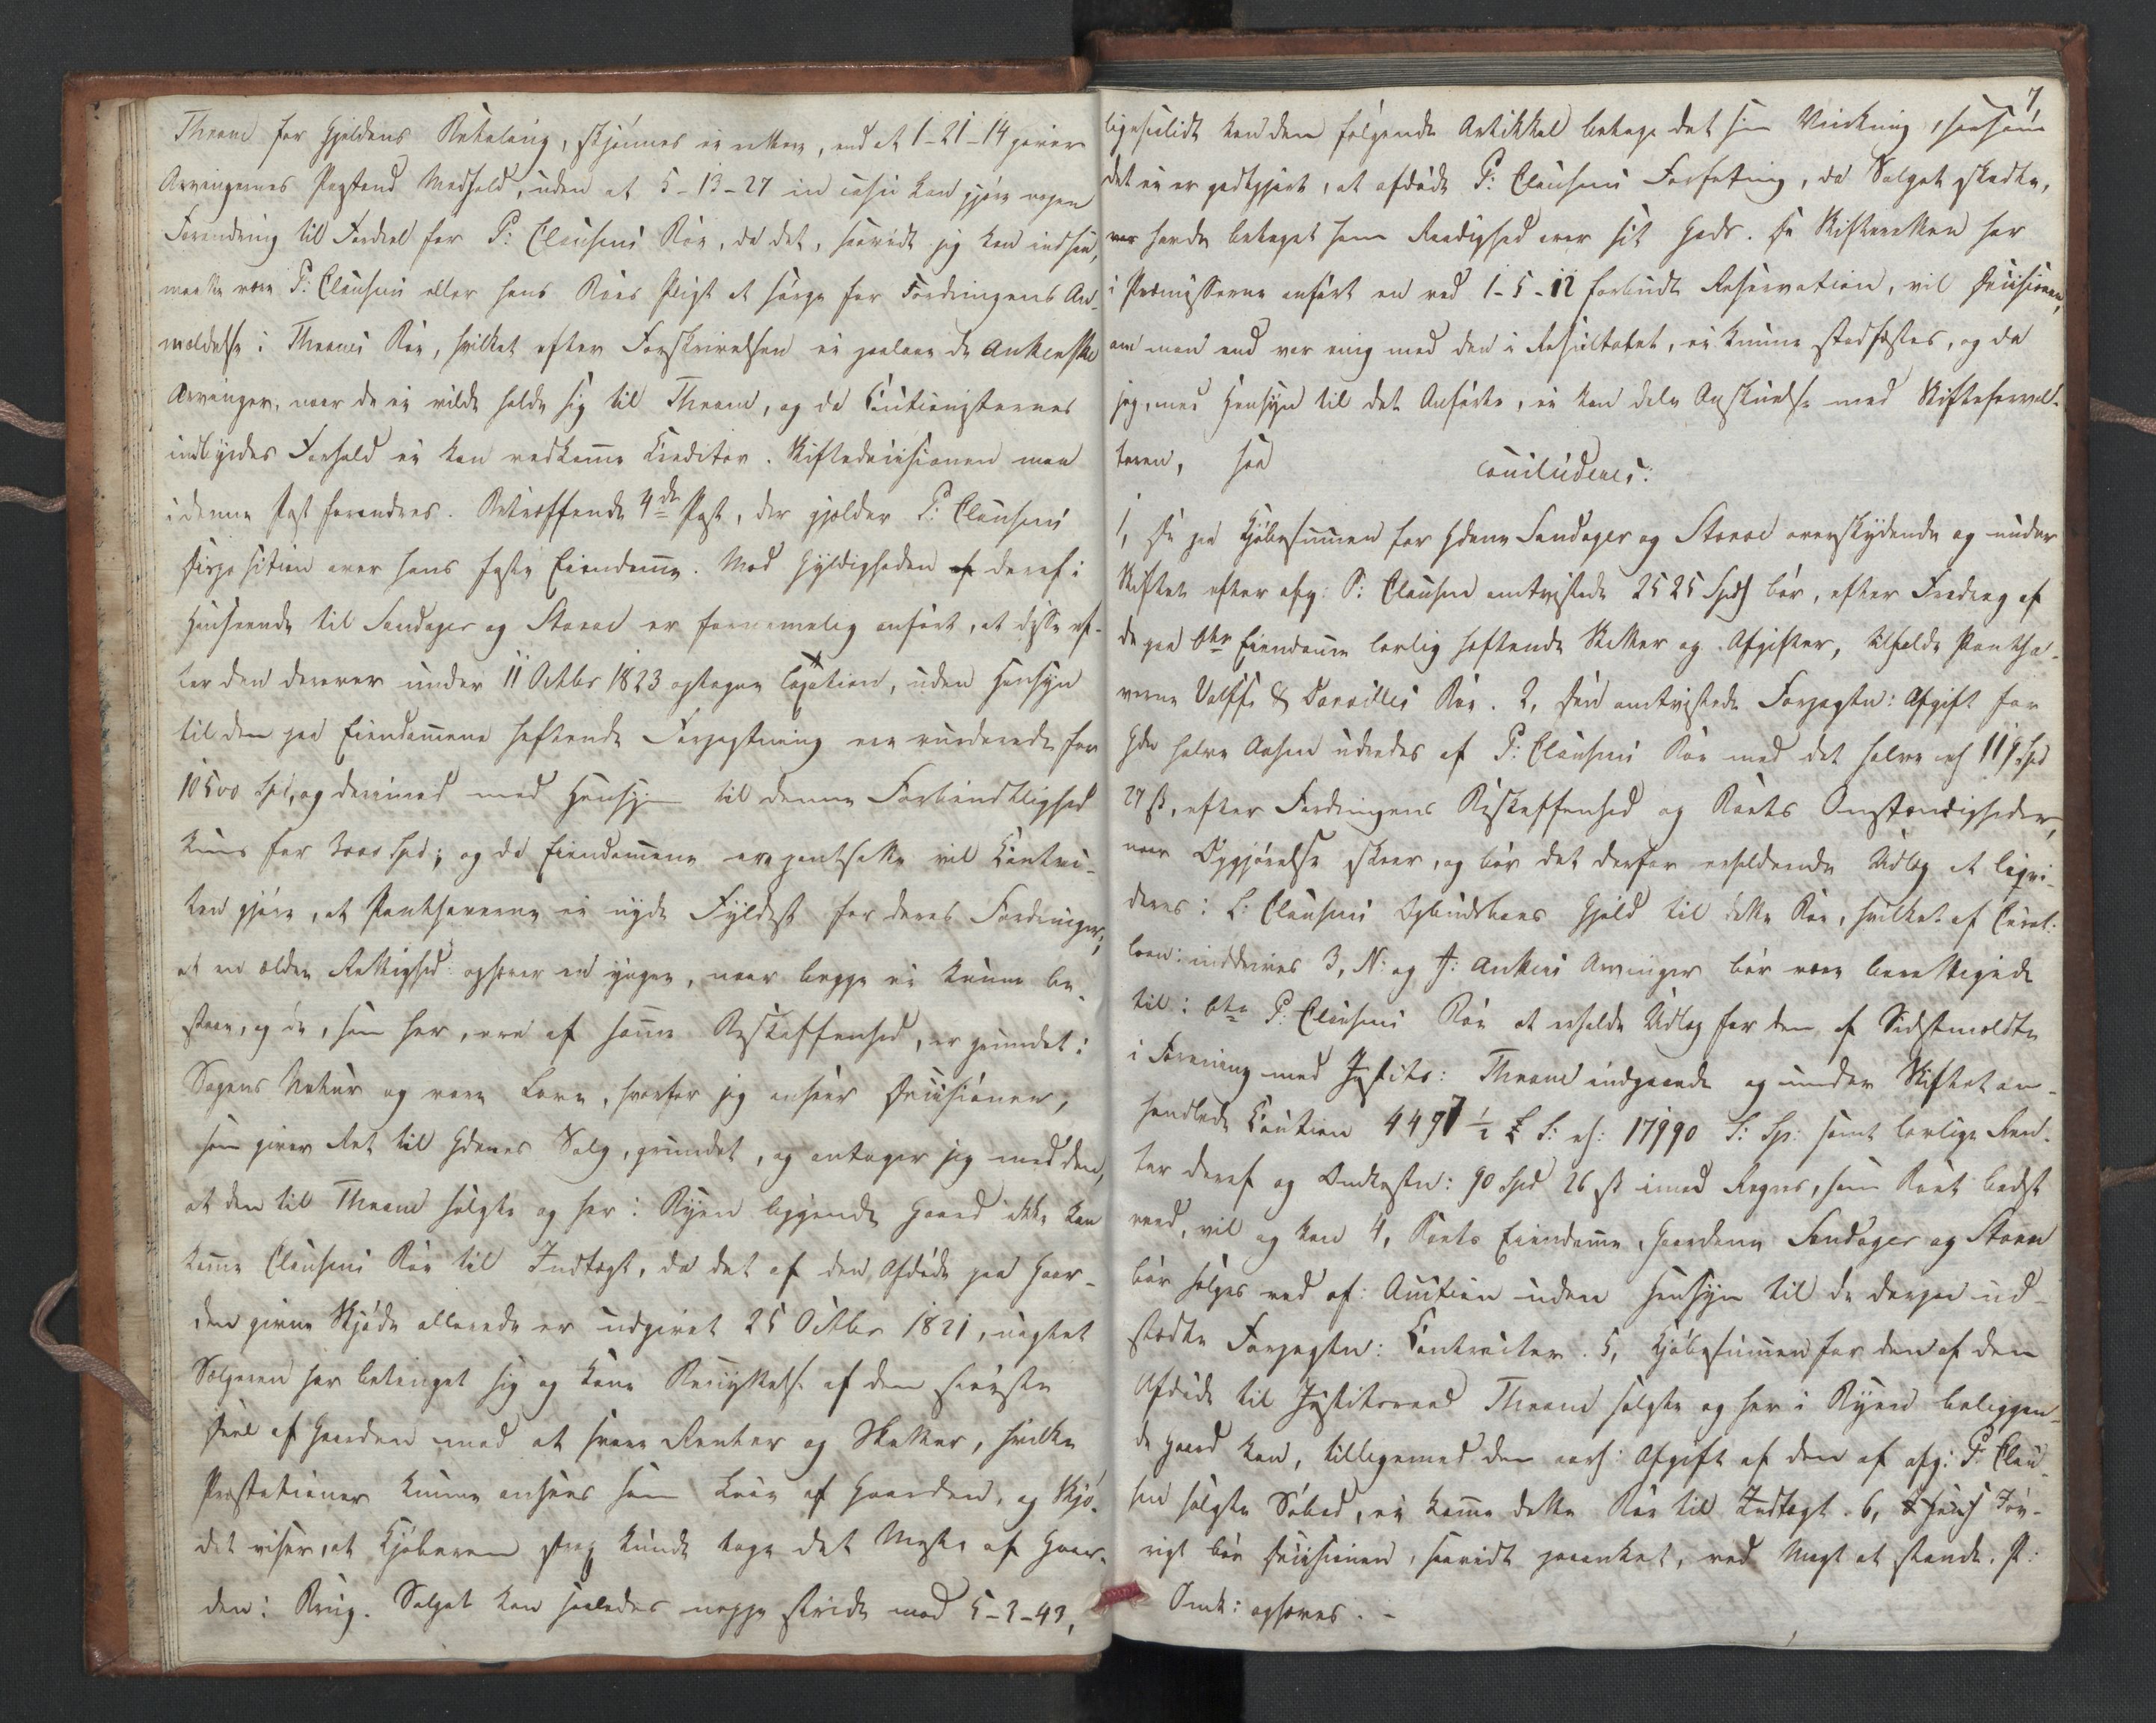 Thrane for Gjeldens Betaling, skjønnes ei rettere, end at 1-21-14 giver
Arvingernes Paastand Medhold, uden at 5-13-27 in casu kan gjøre nogen
Forandring til Fordeel for P: Clausens Boe, da det, saavidt jeg kan indsee,
maatte være P: Clausens eller hans Boes Pligt at sørge for Fordringens An-
meldelse i Thranes Boe, hvilket efter Forskrivelsen ei paalaae de Ankerske
Arvinger, naar de ei vilde holde sig til Thrane, og da Cautionisternes
indbyrdes Forhold ei kan vedkomme Creditor. Skiftedecisionen maa
i denne Post forandres. Betræffende 4de Post, der gjælder P: Clausens
Disposition over hans faste Eiendomme. Mod Gyldigheden deraf i
Henseende til Sandager og Staae er fornemmelig anført, at disse ef-
ter den derover under 11 Octbr 1823 optagne Taxation, uden Hensyn
til den paa Eiendommene heftende Forpagtning ere vurderede for
10500 Spd, og derimod med Hensyn til denne Forbindtlighed
kuns for 3000 Spd; og da Eiendommene ere pantsatte vil Contrac-
ten gjøre, at Panthaverne ei nyde Fyldest for deres Fordringer;
at en ældre Rettighed ophæver en yngre, naar begge ei kunne be-
staae, og de, som her, ere af samme Beskaffenhed, er grundet i
Sagens Natur og vore Love, hvorfor jeg anseer Decisionen,
som giver Ret til Gdenes Salg, grundet, og antager jeg med den,
at den til Thrane solgte og her i Byen liggende Gaard ikke kan
komme Clausens Boe til Indtægt, da det af den Afdøde paa Gaar-
den givne Skjøde allerede er udgivet 25 Octbr 1821, uagtet
Sælgeren har betinget sig og Kone Benyttelse af den største
Deel af Gaarden mod at svare Renter og Skatter, hvilke
Præstationer kunne ansees som Leie af Gaarden, og Skjø-
det viser, at Kjøberen strax kunde tage det Meste af Gaar-
den i Brug. Salget kan saaledes neppe stride mod 5-3-43,
7
ligesaalidt kan den følgende Artikkel betage det sin Virkning, saasom
det ei er godtgjort, at afdøde P: Clausens Forfatning, da Salget skedte,
havde betaget ham Raadighed over sit Gods. Da Skifteretten har
i Præmisserne anført en ved 1-5-12 forbudt Reservation, vil Decisionen,
om man end var enig med den i Resultatet, ei kunne stadfæstes, og da
jeg, med Hensyn til det Anførte, ei kan dele Anskuelse med Skifteforval-
teren, saa
concluderes:
1, De paa Kjøbesummen for Gdene Sandager og Staae overskydende og under
Skiftet efter afg: P: Clausen omtvistede 2525 Spd bør, efter Fradrag af
de paa bte Eiendomme lovlig heftende Skatter og Afgifter, tilfalde Pantha-
verne Wolffs & Dorvilles Boe. 2, Den omtvistede Forpagtn: Afgift for
Gden halve Aasen udredes af P: Clausens Boe med det halve eh 119 Spd
27 s, efter Fordringens Beskaffenhed og Boets Omstændigheder,
naar Opgjørelse skeer, og bør det derfor erholdende Udlæg at liqvi-
deres i L: Clausens Opbudsboes Gjeld til dette Boe, hvilket af Curat:
been: inddrives 3, N: og J: Ankers Arvinger bør være berettigede
til i bte P: Clausens Boe at erholde Udlæg for den af Sidstmeldte
i Forening med Justits: Thrane indgaaede og under Skiftet an-
handlede Caution 4497 1/2 £ S: eh: 17990 S: Sp: samt lovlige Ren-
ter deraf og Omkostn: 90 Spd 26 s imod Regres, som Boet bedst
veed, vil og kan 4, Boets Eiendomme, Gaardene Sandager og Staae
bør sælges ved of: Auction uden Hensyn til de derpaa ud-
stædte Forpagtn: Contracter. 5, Kjøbesummen for den af den
Afdøde til Justitsraad Thrane solgte og her i Byen beliggen-
de Gaard kan, tilligemed den aarl: Afgift af den af afg: P: Clau-
sen solgte Søbod, ei komme dette Boe til Indtægt. 6, I Henseende Øv-
rigt bør Decisionen, saavidt paaanket, ved Magt at stande. P:
Omk: ophæves. -